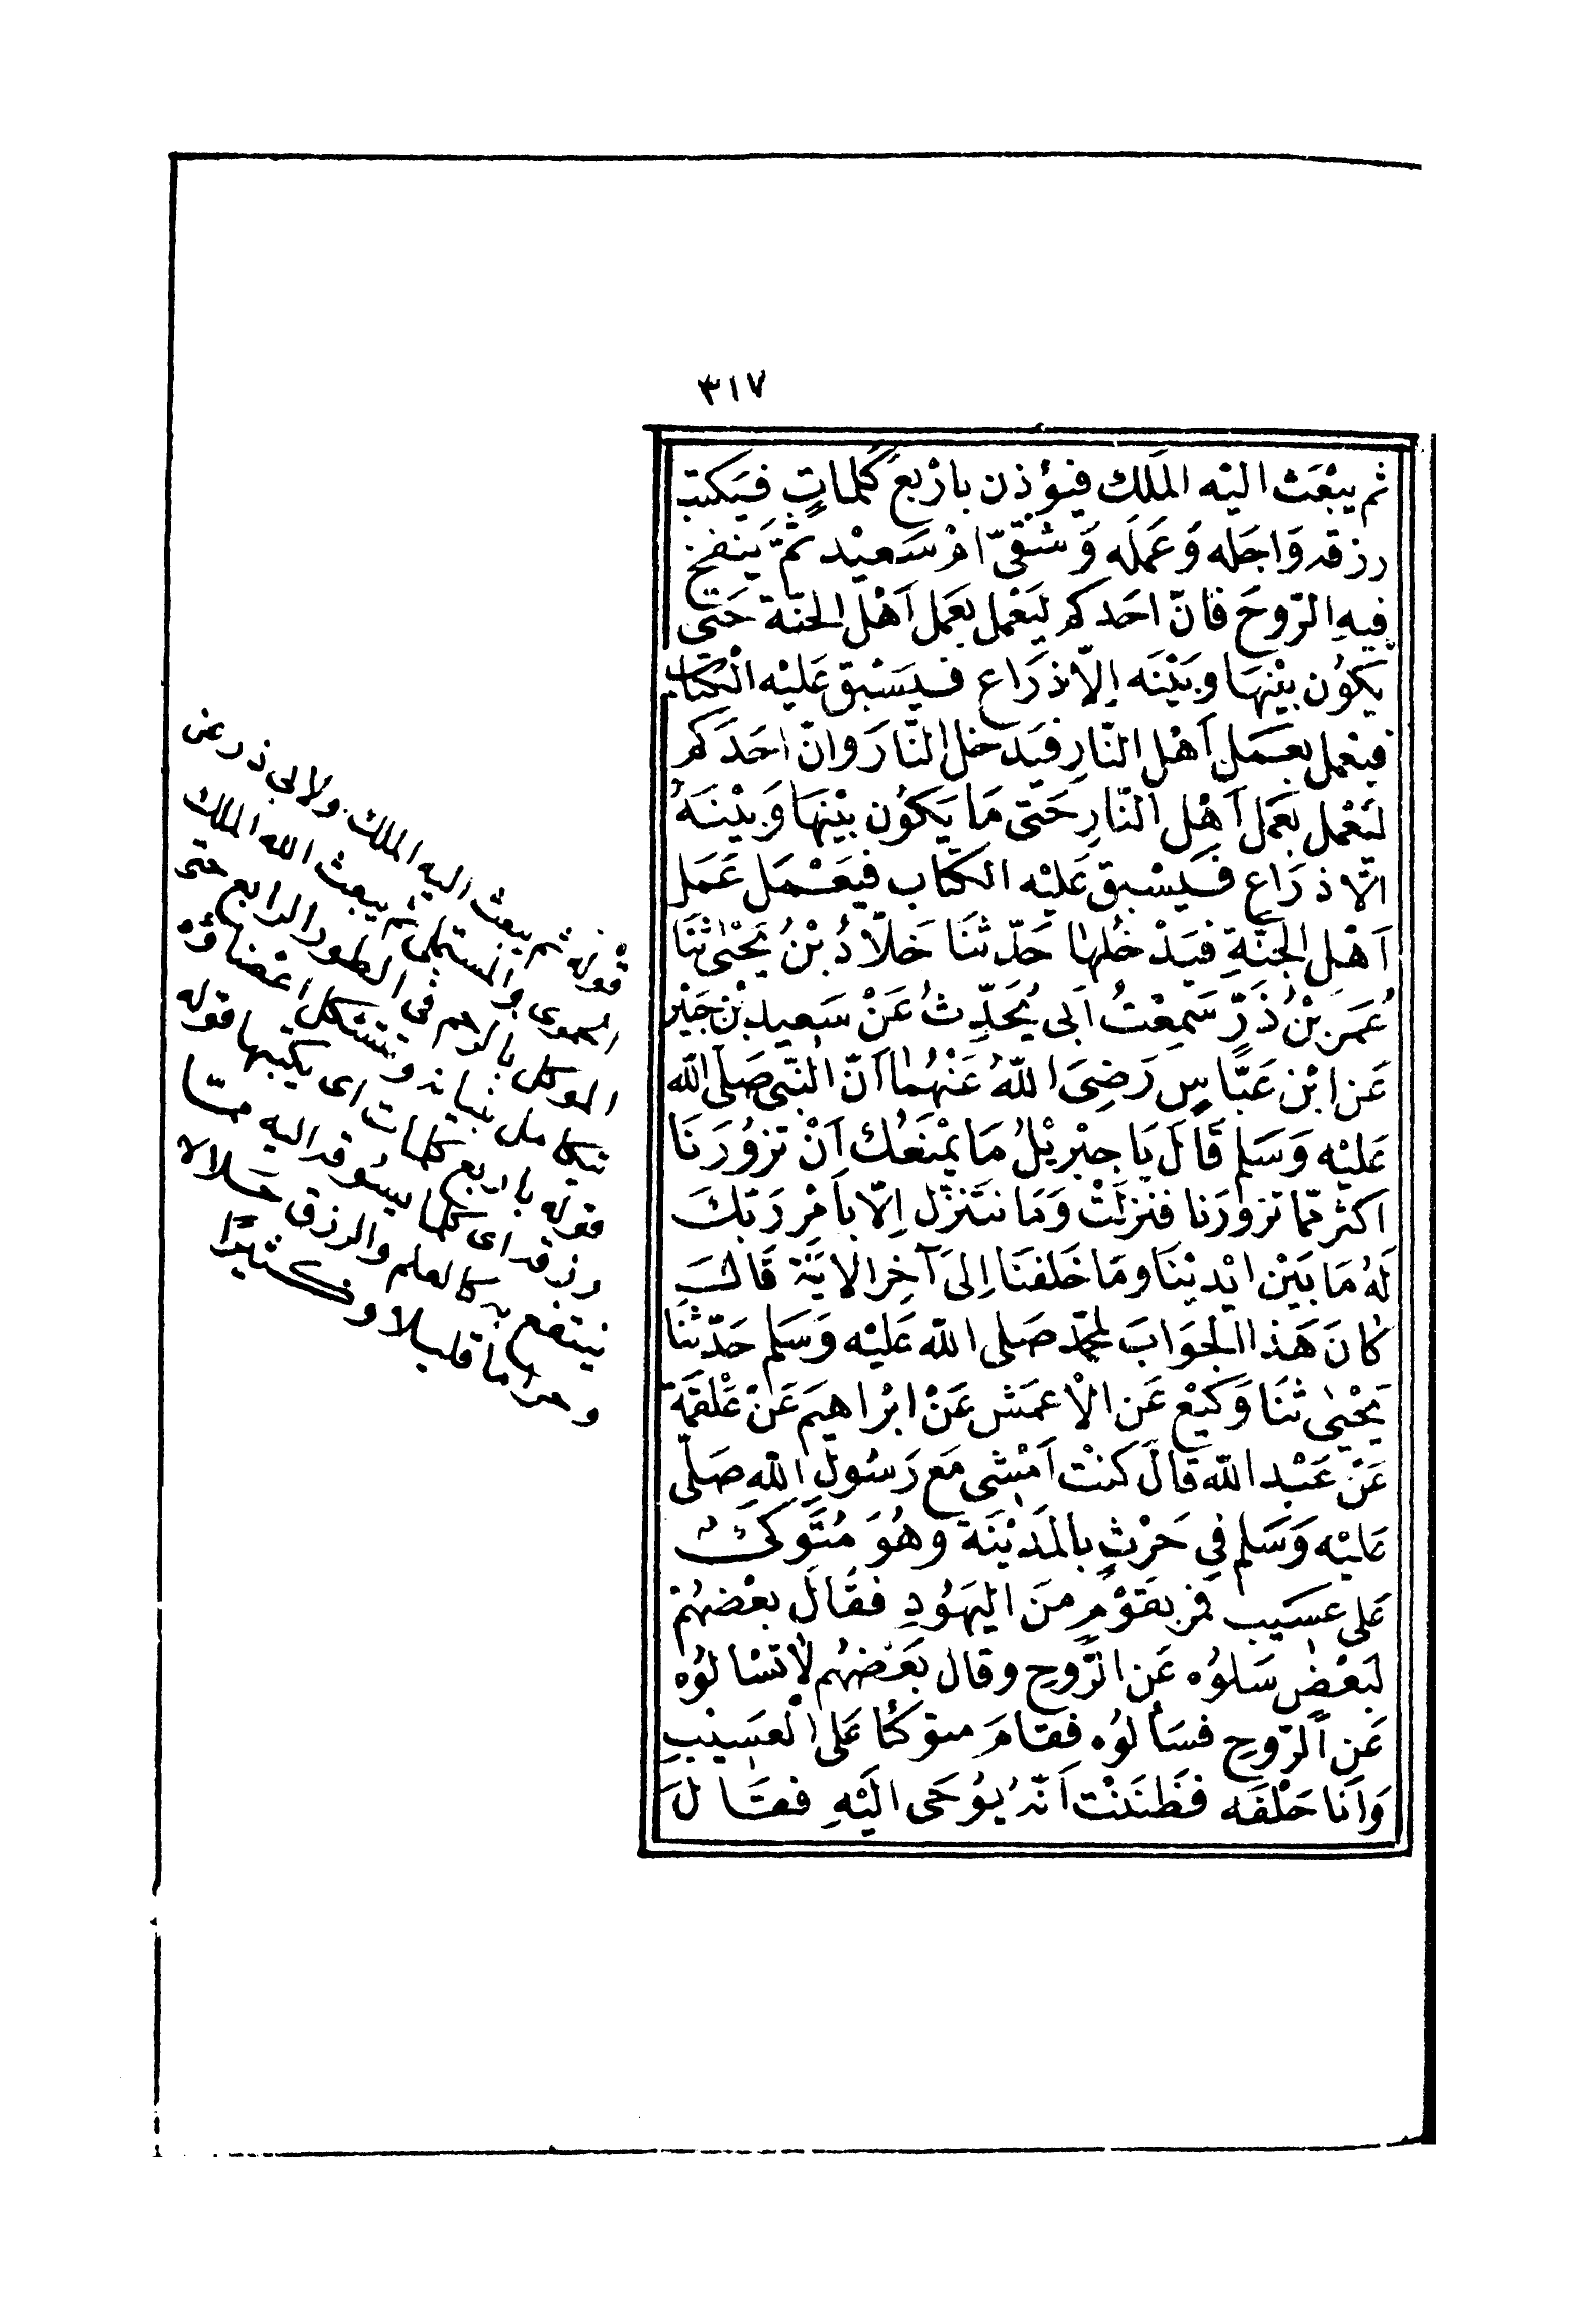 ٣١٧
ثم يبْعَث اليْه المَلَك فيؤذن بارْبع كَلماتٍ فيَكتب
رزقه وَاجله وَعَمَلَه وَشقىّ امْ سَعيْد ثمّ يَنفخ
فيهِ الرّوحَ فانّ احَدكم ليَعْمل بعَمَل اَهْل الجنّة حَتى
يكوُن بيْنهَا وبيْنَه إلاّ ذرَاع فيَسْبق عَليْه الْكتاب
فيَعْمل بعَمَل اَهْل النّارِ فيَدخل النّارَ وَانّ احَدَكم
ليَعْمل بعَمَل اَهْل النّارِ حَتى مَا يَكوُن بيْنهَا وَبيْنَهُ
الّا ذرَاع فَيَسْبق عَليْه الكتاب فيَعْمَل عَمَل
اَهْل الجنّةِ فيَدْخُلها حَدّثنَا خَلّادُ بْنُ يَحْيٰى ثنَا
عُمَرَ بْنُ ذَرّ سَمِعْتُ اَبى يُحَدِّثُ عَنْ سَعيد بْن جبَيْر
عَن ابْن عَبّاسٍ رَضىَ اللهُ عَنْهُما اَنّ النّبى صَلى الله
عَليْه وَسَلم قَالَ يَا جبْريْلُ مَا يمْنعُك اَنْ تزوُرَنَا
اكثر ممّا تزوُرَنا فنزلَتْ وَمَا نتَنزّل اِلّا باَمْر رَبّكَ
لهُ مَا بَيْن ايْديْنَا وَمَا خَلفنَا اِلىَ آخِر الايَة قَالَ
كانَ هَذا الجوَابَ لمحمّد صَلى الله عَليْه وَسَلم حَدّثنَا
يَحْيٰى ثنَا وَكيْع عَن الْاعمَش عَنْ ابْراهيمَ عَنْ عَلْقمَة
عَنْ عَبْد الله قالَ كنْت اَمْشى مَع رَسُولِ اللهِ صَلّى
عَليْه وَسَلم فى حَرْثٍ بالمَديْنَة وَهُوَ مُتَوَكئ
عَلى عسَيب فمرّ بقَوْمٍ منَ اليَهُودِ فقَالَ بعْضهُمْ
لبَعْضٍ سَلوُه عَن الرّوحِ وقال بَعَضهُم لَا تسْالوُه
عَن الرّوحِ فسَألوُه فقامَ متوكئا عَلى الْعسَيْبِ
وَاَنا خَلْفَه فظَننْت اَنّهُ يوُحَى اليَْهِ فقَالَ
قوله ثم يبعث اليه الملك ولابي ذر عن
الحموى والمستملى ثم يبعث الله الملك
الموكل بالرحم فى الطور الرابع حتى
يتكامل بنيانه وتتشكل اعضاؤه
قوله باربع كلمات اى يكتبها قوله
رزقه اى كلما يسوقه اليه مما
ينتفع به كالعلم والرزق حلالا
وحراما قليلا وكثيرًا